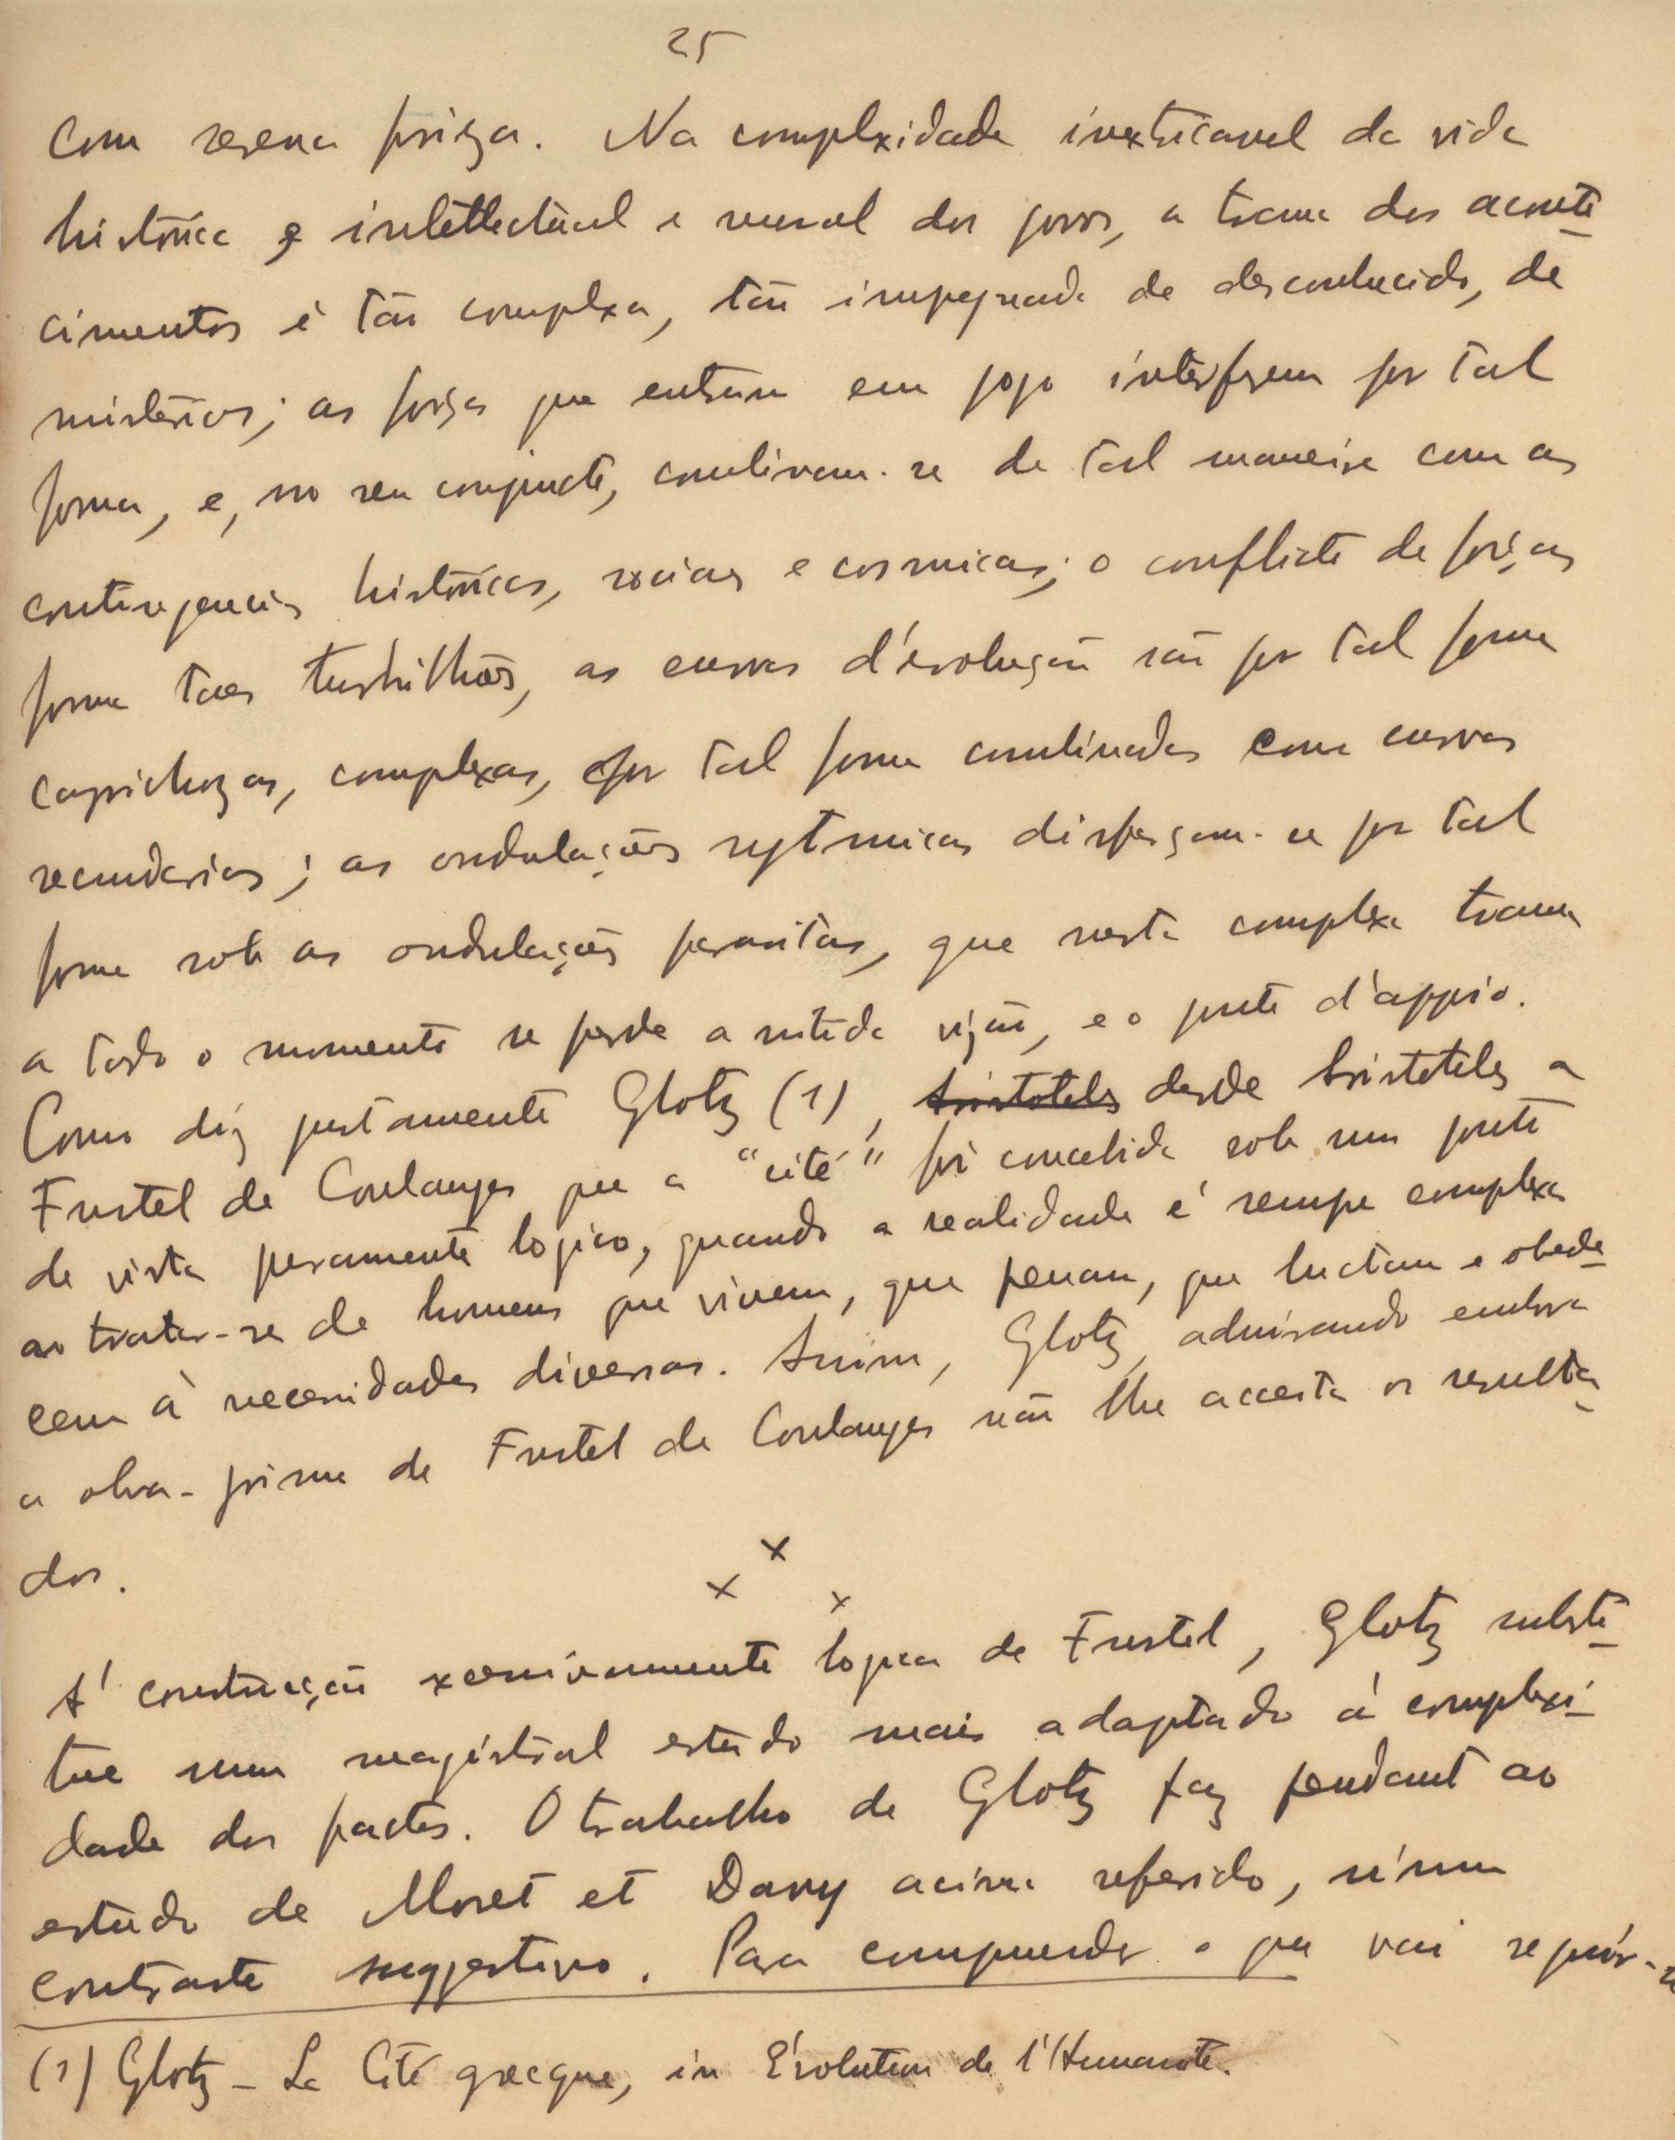 25
com serena firiza. Na complexidade inextricavel da vida
historica e intellectual e moral dos povos, a trama dos aconte
cimentos é tão complexa, tão impregnada de desconhecido, de
misterios; as forças que entram em jogo interferem por tal
forma, e, no seu conjuncto, combinam-se de tal maneira com as
contingencias historicas, sociaes e cosmicas; o conflicto de forças
forma taes turbilhões, as curvas d'evolução são por tal forma
caprichozas, complexas, por tal forma combinadas com curvas
secundarias; as ondulações rytmicas disfarçam-se por tal
forma sob as ondulações parasitas, que nesta complexa trama
a todo o momento se perde a nitida vizão, e o ponto d'appoio.
Como diz justamente Glotz (1), Aristoteles desde Aristoteles a
Fustel de Coulanges que a "cité" foi concebida sob um ponto
de vista puramente logico, quando a realidade é sempre complexa
ao tratar-se de homens que vivem, que penam, que luctam e obede
cem á necessidades diversas. Assim, Glotz, admirando embora
a obra-prima de Fustel de Coulanges não lhe acceita os resulta
dos.
x x x
A' construcção excessivamente logica de Fustel, Glotz substi
tue um magistral estudo mais adaptado á complexi
dade dos factos. O trabalho de Glotz faz pendant ao
estudo de Moret et Davy acima referido, n'um
contraste suggestivo. Para comprender o que vai seguir-se
(1) Glotz - La Cité grecque, in Évolution de l'Humanité.